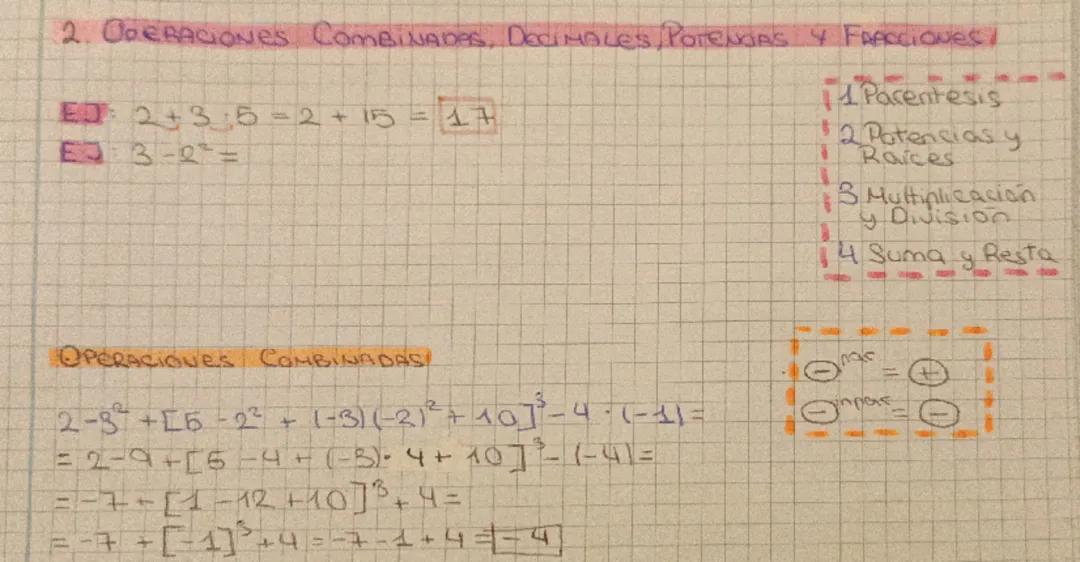 2. OPERACIONES COMBINADAS, DECIMALES, POTENCIAS Y FRACCIONES
EJ: 2 + 3 · 5 = 2 + 15 = 17
EJ: 3 - 2² =
1 Parentesis
2 Potencias y
Raíces
3 Multiplicación
y División
4 Suma y Resta
OPERACIONES COMBINADAS
⊖ᵖᵃʳ = ⊕
⊖ⁱᵐᵖᵃʳ = ⊖
2-3² + [5 - 2² + (-3)(-2)² + 10]³ - 4 · (-1) =
= 2-9+[5 -4 + (-3) · 4 + 10]³ - (-4) =
= -7 + [1 - 12 + 10]³ + 4 =
= -7 + [-1]³ + 4 = -7 - 1 + 4 = -4